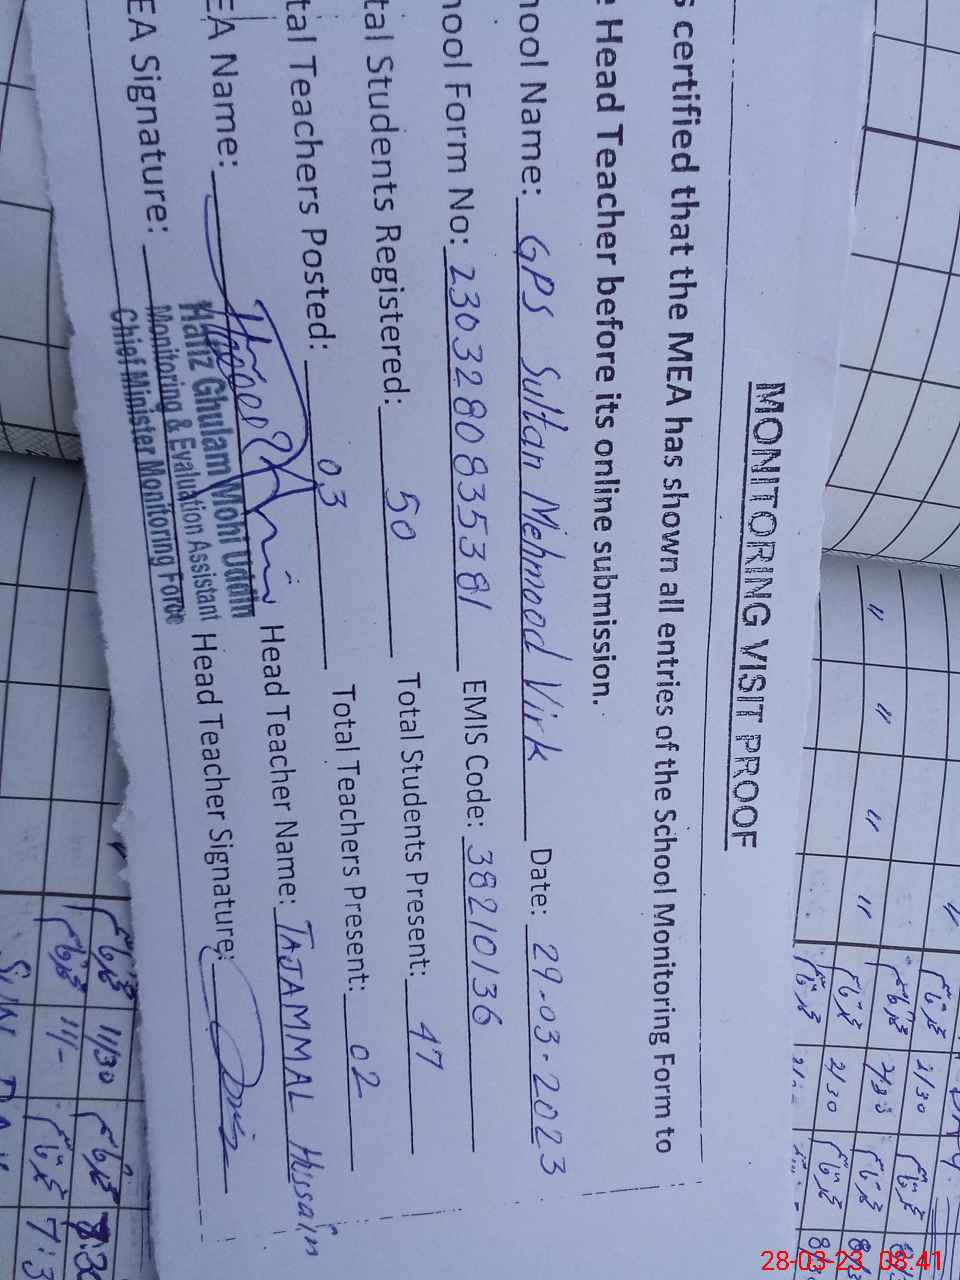 MONITORING VISIT PROOF
s certified that the MEA has shown all entries of the School Monitoring Form to
e Head Teacher before its online submission.
hool Name: GPS Sultan Mehmood Virk Date: 29.03.2023
hool Form No: 2303280835381 EMIS Code: 38210136
tal Students Registered: 50 Total Students Present: 47
tal Teachers Posted: 03 Total Teachers Present: 02
EA Name: Head Teacher Name: TAJAMMAL Hussain
EA Signature: Head Teacher Signature:
Hafiz Ghulam Mohi Uddin
Monitoring & Evaluation Assistant
Chief Minister Monitoring Force
11/30
11/-
7:3
2/30
2/30
28-03-23 08:41